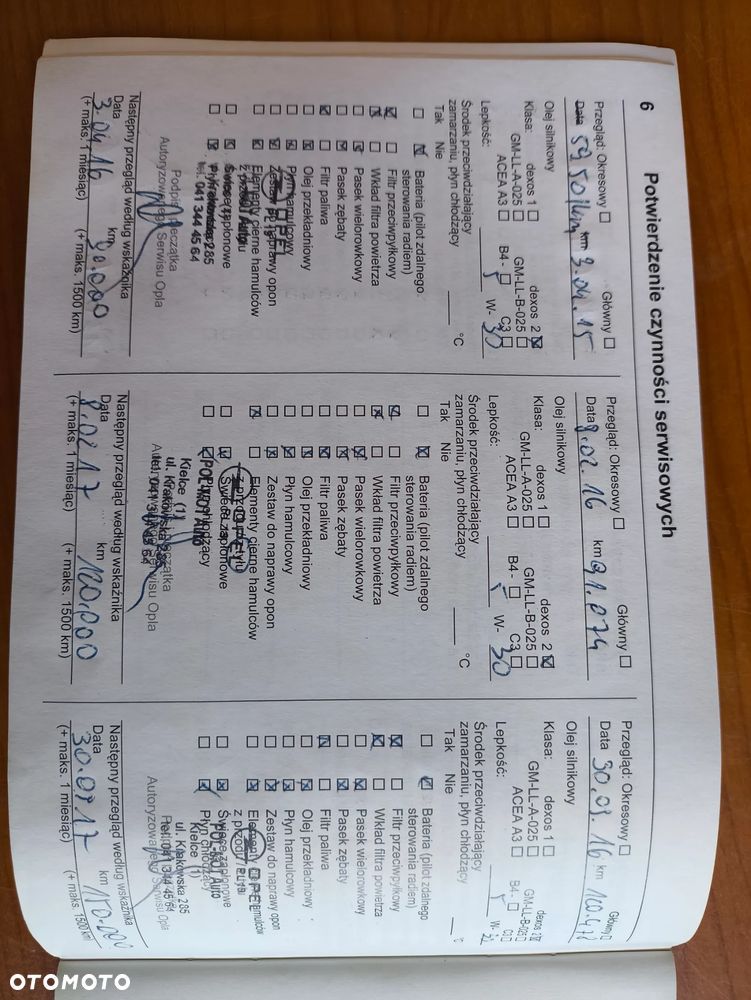 6
Potwierdzenie czynności serwisowych
Przegląd: Okresowy ☐ Główny ☐
Data 59 501km km 3.04.15
Olej silnikowy
Klasa: dexos 1 ☐ dexos 2 ☒
GM-LL-A-025 ☐ GM-LL-B-025 ☐
ACEA A3 ☐ B4 - ☐ C3 ☐
Lepkość: 5 W- 30
Środek przeciwdziałający
zamarzaniu, płyn chłodzący °C
Tak Nie
☐ ☒ Bateria (pilot zdalnego
sterowania radiem)
☒ ☐ Filtr przeciwpyłkowy
☒ ☐ Wkład filtra powietrza
☐ ☒ Pasek wielorowkowy
☐ ☒ Pasek zębaty
☒ ☐ Filtr paliwa
☐ ☒ Olej przekładniowy
☐ ☒ Płyn hamulcowy
☐ ☒ Zestaw do naprawy opon
☐ ☒ Elementy cierne hamulców
z przodu i z tyłu
☐ ☒ Świece zapłonowe
☐ ☒ Płyn chłodzący
OPEL
ul. Krakowska 285
tel. 041 344 45 64
Podpis i pieczątka
Autoryzowanego Serwisu Opla
Następny przegląd według wskaźnika
Data km
3.04.16 30.000
(+ maks. 1 miesiąc) (+ maks. 1500 km)
Przegląd: Okresowy ☐ Główny ☐
Data 8.02.16 km 91.074
Olej silnikowy
Klasa: dexos 1 ☐ dexos 2 ☒
GM-LL-A-025 ☐ GM-LL-B-025 ☐
ACEA A3 ☐ B4 - ☐ C3 ☐
Lepkość: 5 W- 30
Środek przeciwdziałający
zamarzaniu, płyn chłodzący °C
Tak Nie
☐ ☒ Bateria (pilot zdalnego
sterowania radiem)
☒ ☐ Filtr przeciwpyłkowy
☒ ☐ Wkład filtra powietrza
☐ ☒ Pasek wielorowkowy
☐ ☒ Pasek zębaty
☐ ☒ Filtr paliwa
☐ ☒ Olej przekładniowy
☐ ☒ Płyn hamulcowy
☐ ☒ Zestaw do naprawy opon
☒ ☐ Elementy cierne hamulców
z przodu i z tyłu
☐ ☒ Świece zapłonowe
☐ ☒ Płyn chłodzący
OPEL
POL-MOT Auto
Kielce (1)
ul. Krakowska 285
tel. 041 344 45 64
Podpis i pieczątka
Autoryzowanego Serwisu Opla
Następny przegląd według wskaźnika
Data km
8.02.17 120.000
(+ maks. 1 miesiąc) (+ maks. 1500 km)
Przegląd: Okresowy ☐ Główny ☐
Data 30.09.16 km
Olej silnikowy
Klasa: dexos 1 ☐ dexos 2 ☒
GM-LL-A-025 ☐ GM-LL-B-025 ☐
ACEA A3 ☐ B4 - ☐ C3 ☐
Lepkość: 5 W-
Środek przeciwdziałający
zamarzaniu, płyn chłodzący °C
Tak Nie
☐ ☒ Bateria (pilot zdalnego
sterowania radiem)
☒ ☐ Filtr przeciwpyłkowy
☒ ☐ Wkład filtra powietrza
☐ ☒ Pasek wielorowkowy
☐ ☒ Pasek zębaty
☒ ☐ Filtr paliwa
☐ ☒ Olej przekładniowy
☐ ☒ Płyn hamulcowy
☐ ☒ Zestaw do naprawy opon
☐ ☒ Elementy cierne hamulców
z przodu i z tyłu
☐ ☒ Świece zapłonowe
☐ ☒ Płyn chłodzący
OPEL
POL-MOT Auto
Kielce (1)
ul. Krakowska 285
tel. 041 344 45 64
Autoryzowanego Serwisu Opla
Następny przegląd według wskaźnika
Data km
30.09.17 150.000
(+ maks. 1 miesiąc) (+ maks. 1500 km)
OTOMOTO